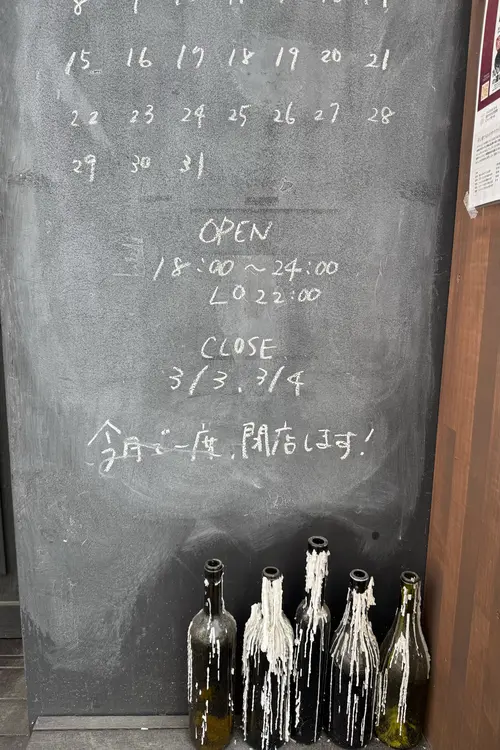 15 16 17 18 19 20 21
22 23 24 25 26 27 28
29 30 31
OPEN
18:00〜24:00
LO 22:00
CLOSE
3/3, 3/4
今月で一度、閉店します!